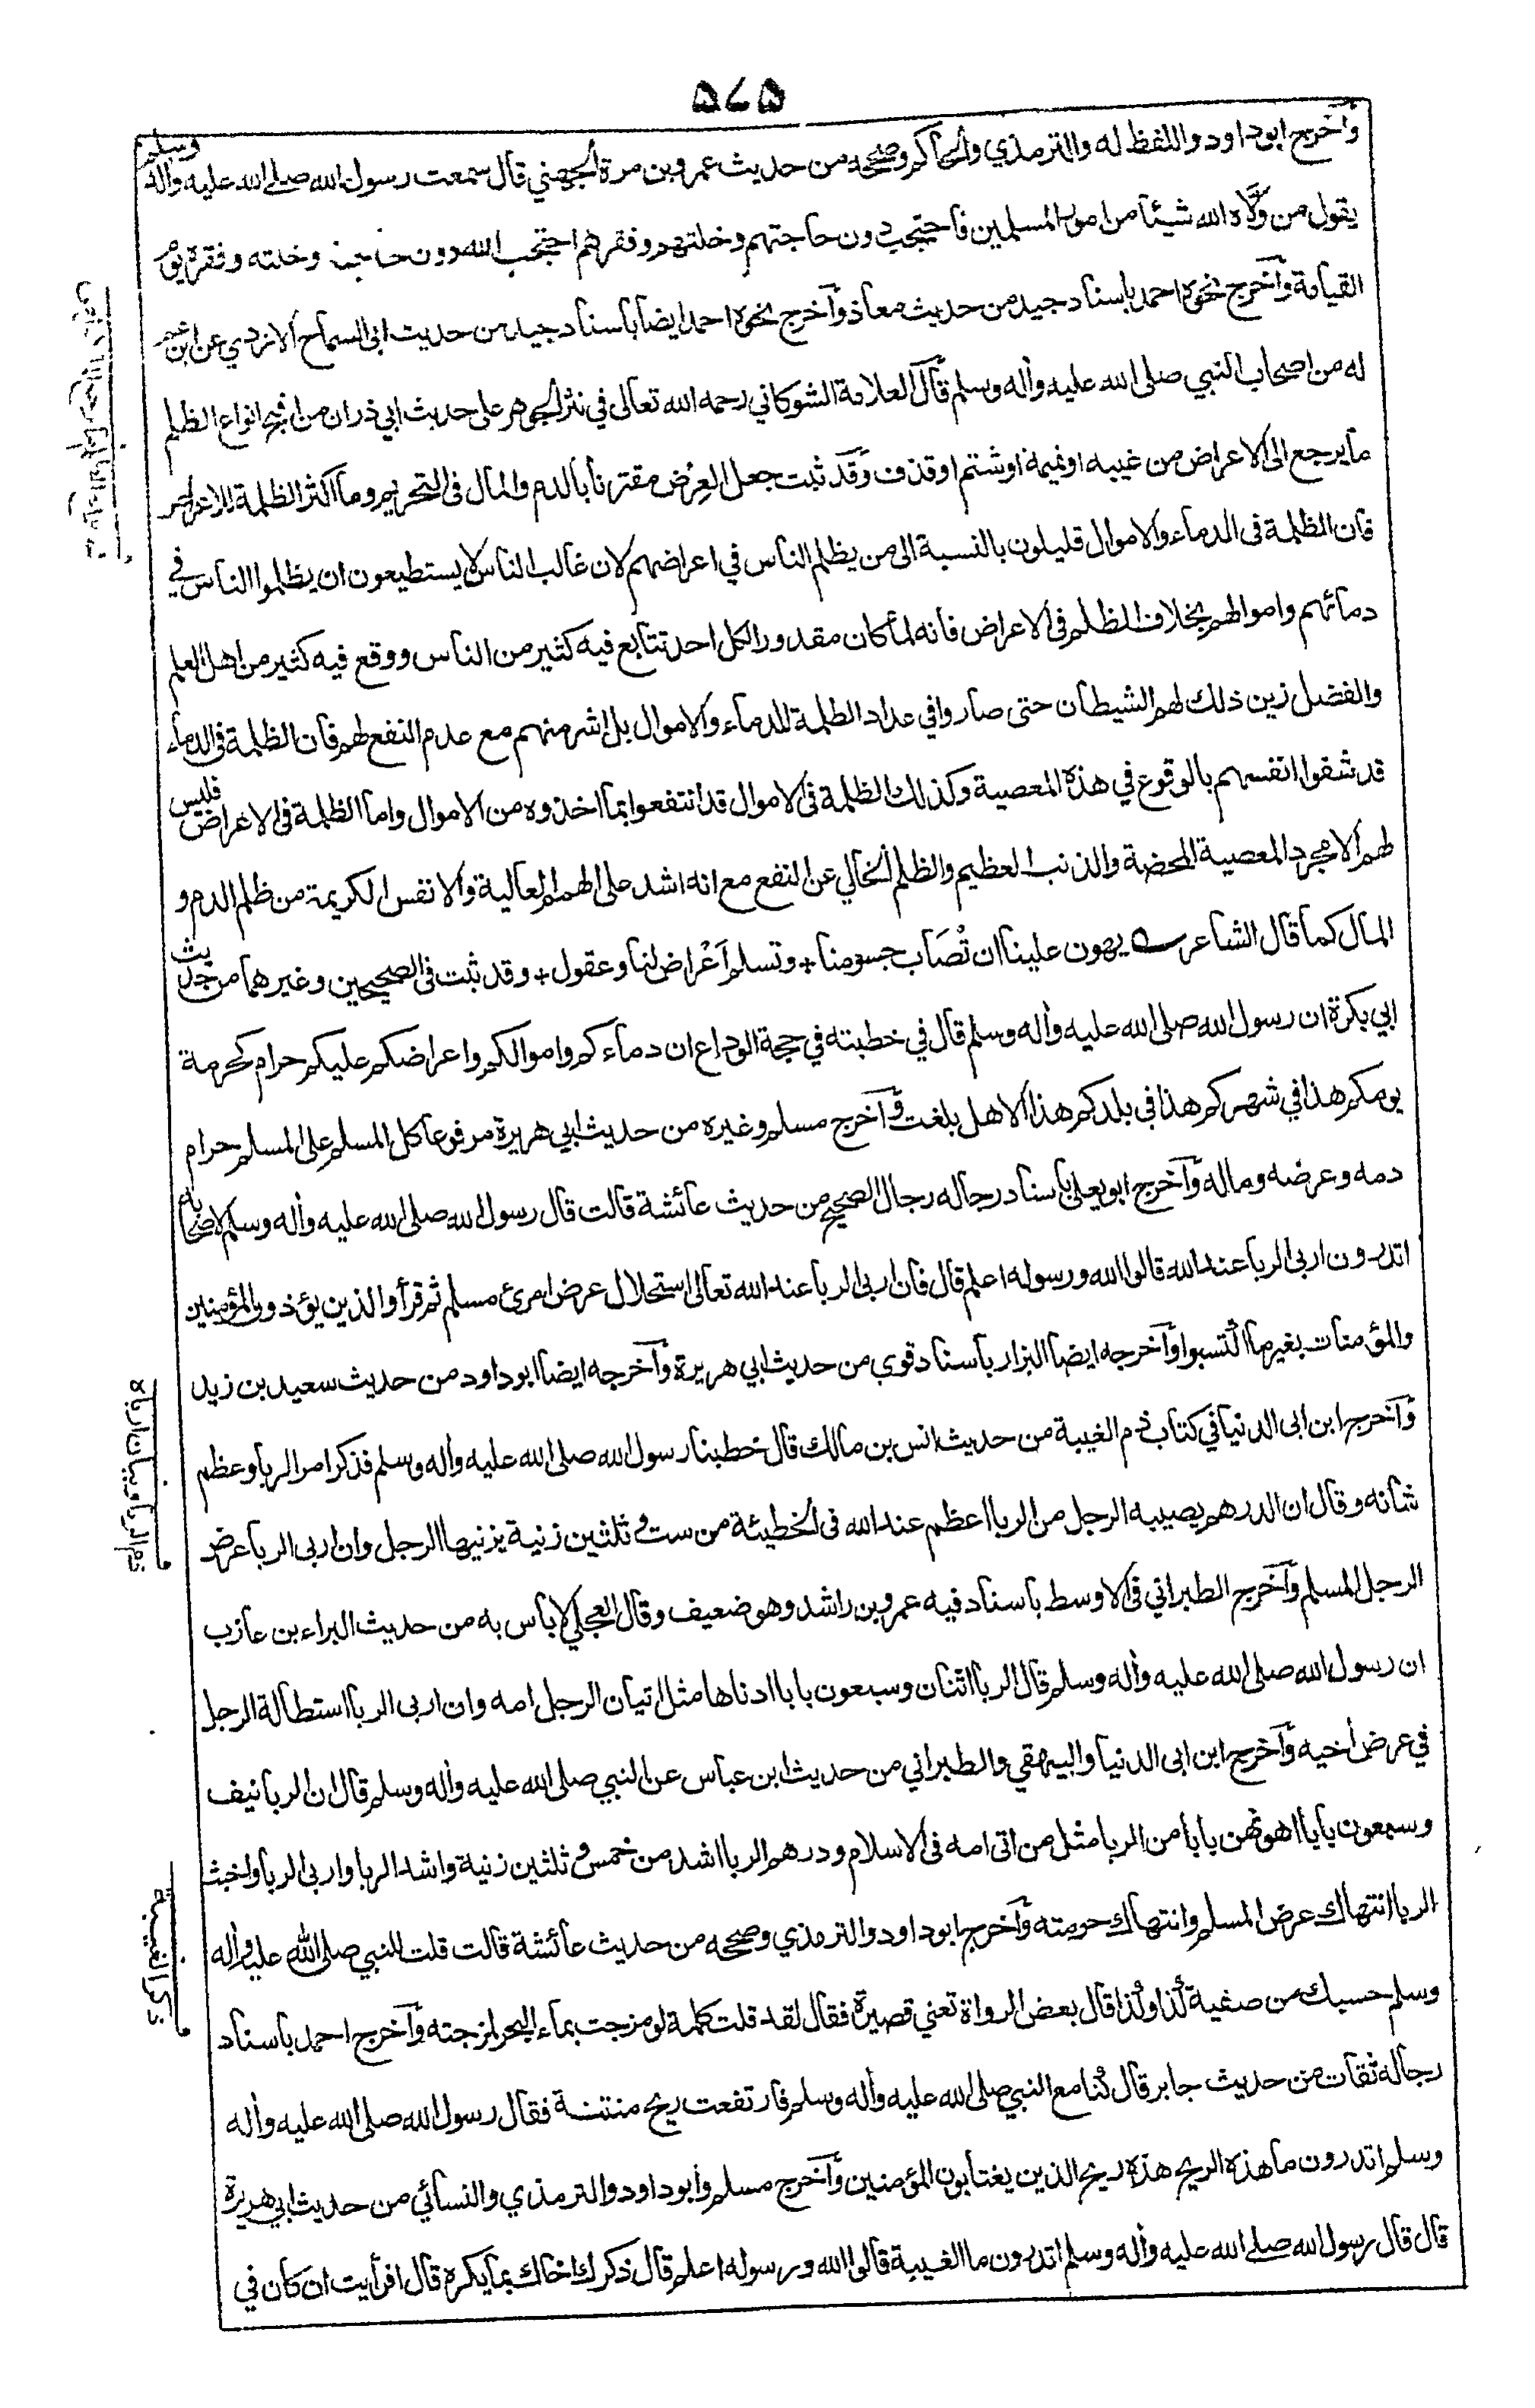 ٥٤٥
وأخرج ابوداود واللفظ له والترمذي والحاكم وصححه من حديث عمرو بن مرة الجهني قال سمعت رسول الله صلى الله عليه واله وسلم
يقول من ولاه الله شيئا من امور المسلمين فاحتجب دون حاجتهم وخلتهم وفقرهم احتجب الله دون حاجته وخلته وفقره يوم
القيامة وأخرج نحوه احمد باسناد جيد من حديث معاذ وأخرج نحوه احمد ايضا باسناد جيد من حديث ابى السماح الازدي عن ابن عم
له من اصحاب النبي صلى الله عليه واله وسلم قال العلامة الشوكاني رحمه الله تعالى في نثر الجوهر على حديث ابي ذر ان من اقبح انواع الظلم
ما يرجع الى الاعراض من غيبه او نميمة او شتم او قذف وقد ثبت جعل العِرْض مقترنا بالدم والمال فى التحريم وما اكثر الظلمة للاعراض
فان الظلمة فى الدماء والاموال قليلون بالنسبة الى من يظلم الناس في اعراضهم لان غالب الناس لا يستطيعون ان يظلموا الناس في
دمائهم واموالهم بخلاف الظلم فى الاعراض فانه لما كان مقدورا لكل احد تتابع فيه كثير من الناس ووقع فيه كثير من اهل العلم
والفضل زين ذلك لهم الشيطان حتى صاروا في عداد الظلمة للدماء والاموال بل اشر منهم مع عدم النفع لهم فان الظلمة فى الدماء
قد شفوا انفسهم بالوقوع في هذه المعصية وكذلك الظلمة فى الاموال قد انتفعوا بما اخذوه من الاموال واما الظلمة فى الاعراض فليس
لهم الا مجرد المعصية المحضة والذنب العظيم والظلم الخالي عن النفع مع انه اشد على الهمم العالية والانفس الكريمة من ظلم الدم و
المال كما قال الشاعر يهون علينا ان تُصَاب جسومنا + وتسلم اَعْراض لنا وعقول + وقد ثبت فى الصحيحين وغيرهما من حديث
ابي بكرة ان رسول الله صلى الله عليه واله وسلم قال في خطبته في حجة الوداع ان دماءكم واموالكم واعراضكم عليكم حرام كحرمة
يومكم هذا في شهركم هذا في بلدكم هذا الا هل بلغت وأخرج مسلم وغيره من حديث ابي هريرة مرفوعا كل المسلم على المسلم حرام
دمه وعرضه وماله وأخرج ابو يعلى باسناد رجاله رجال الصحيح من حديث عائشة قالت قال رسول الله صلى الله عليه واله وسلم لاصحابه
اتدرون اربى الربا عند الله قالوا الله ورسوله اعلم قال فان اربى الربا عند الله تعالى استحلال عرض امرئ مسلم ثم قرأ والذين يؤذون المؤمنين
والمؤمنات بغير ما اكتسبوا وأخرجه ايضا البزار باسناد قوي من حديث ابي هريرة وأخرجه ايضا ابو داود من حديث سعيد بن زيد
وأخرج ابن ابى الدنيا في كتاب ذم الغيبة من حديث انس بن مالك قال خطبنا رسول الله صلى الله عليه واله وسلم فذكر امر الربا وعظم
شانه وقال ان الدرهم يصيبه الرجل من الربا اعظم عند الله فى الخطيئة من ست وثلثين زنية يزنيها الرجل وان اربى الربا عرض
الرجل المسلم وأخرج الطبراني فى الاوسط باسناد فيه عمرو بن راشد وهو ضعيف وقال العجلي لا باس به من حديث البراء بن عازب
ان رسول الله صلى الله عليه واله وسلم قال الربا اثنان وسبعون بابا ادناها مثل اتيان الرجل امه وان اربى الربا استطالة الرجل
في عرض اخيه وأخرج ابن ابى الدنيا والبيهقي والطبراني من حديث ابن عباس عن النبي صلى الله عليه واله وسلم قال ان الربا نيف
وسبعون بابا اهونهن بابا من الربا مثل من اتى امه فى الاسلام ودرهم الربا اشد من خمس وثلثين زنية واشد الربا واربى الربا واخبث
الربا انتهاك عرض المسلم وانتهاك حرمته وأخرج ابو داود والترمذي وصححه من حديث عائشة قالت قلت للنبي صلى الله عليه واله
وسلم حسبك من صفية كذا وكذا قال بعض الرواة تعني قصيرة فقال لقد قلت كلمة لو مزجت بماء البحر لمزجته وأخرج احمد باسناد
رجاله ثقات من حديث جابر قال كنا مع النبي صلى الله عليه واله وسلم فارتفعت ريح منتنة فقال رسول الله صلى الله عليه واله
وسلم اتدرون ما هذه الريح هذه ريح الذين يغتابون المؤمنين وأخرج مسلم وابو داود والترمذي والنسائي من حديث ابي هريرة
قال قال رسول الله صلى الله عليه واله وسلم اتدرون ما الغيبة قالوا الله ورسوله اعلم قال ذكرك اخاك بما يكره قال افرأيت ان كان في
ذم الربا وبيان ارباه
ذكر الغيبة